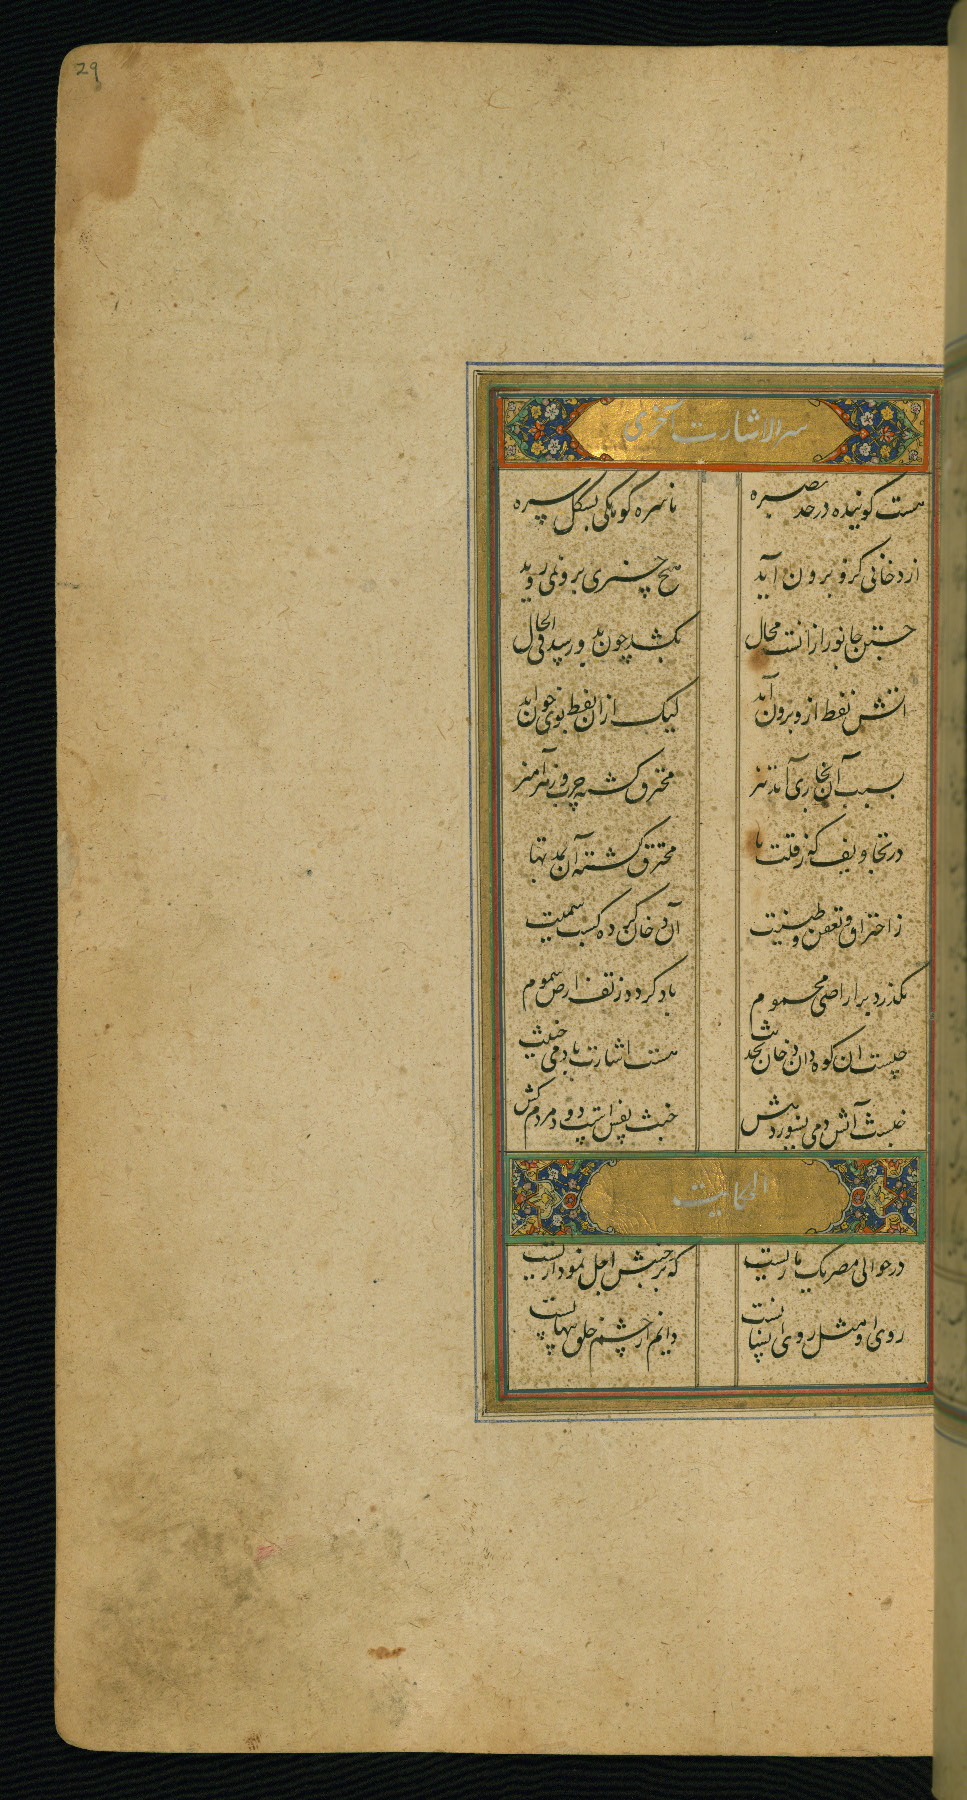 29
سر الاشارت آخری
هست کوینده در حد بصره
ناسره کوهکی بشکل سره
از دخانی کزو برون آید
هیچ چیزی برو نمی روید
جستن جانور از انست محال
بکشد چون بدو رسد فی الحال
اتش نفط ازو برون آید
لیک ازان نفط بوی خون اید
سبب آن بخاری آمد تیز
محترق کشته چرب و زهرآمیز
در تجاویف که ز قلت ما
محترق کشته آن
ز احتراق و تعفن و طینیت
آن دخان کرده کسب سمیت
بگذرد بر اراضی محموم
باد کردد ز تف ارض سموم
چیست ان کوه دان دخان
هست اشارت بادمی خبیث
خبث آتش دمی
خبث نفس است دود مردم کش
الحکایت
در حوالی مصر یک ماریست
که بر جنبش اجل نموداریست
روی او مثل روی انسانست
دایم از چشم خلق پنهانست